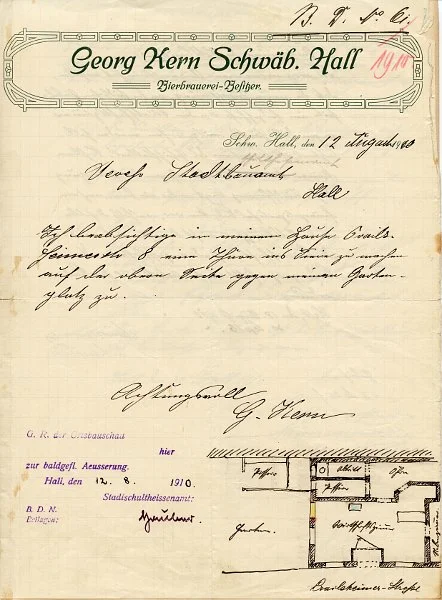 B. D. No 61
1910
Georg Kern Schwäb. Hall
Bierbrauerei-Besitzer.
Schw. Hall, den 12 August 1910
Stadtbauamt
Hall
Ich beabsichtige in meinem Hause Crails-
heimerstr 8 eine Thüre ins Freie zu machen
auf der obern Seite gegen meinen Garten-
platz zu.
Achtungsvoll
G. Kern
G. R. der Ortsbauschau
hier
zur baldgefl. Aeusserung.
Hall, den 12. 8. 1910.
Stadtschultheissenamt:
B. D. N.
Beilagen:
Abtritt
Garten
Wirtschaftszimmer
Crailsheimer-Straße